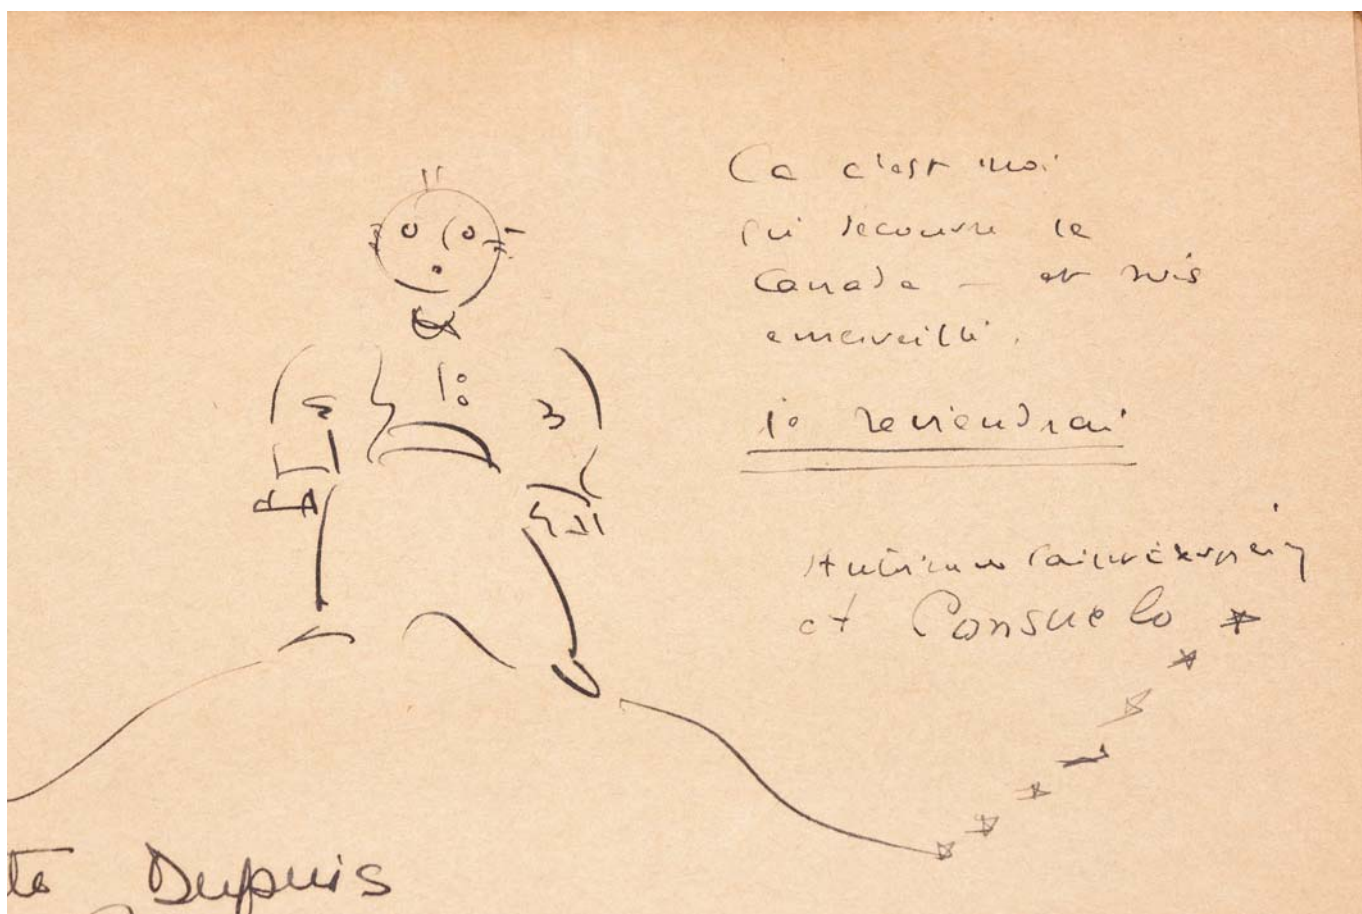 Ca c'est moi
qui découvre le
Canada – et suis
emerveillé.
je reviendrai
Antoine de Saint Exupéry
et Consuelo
te Dupuis